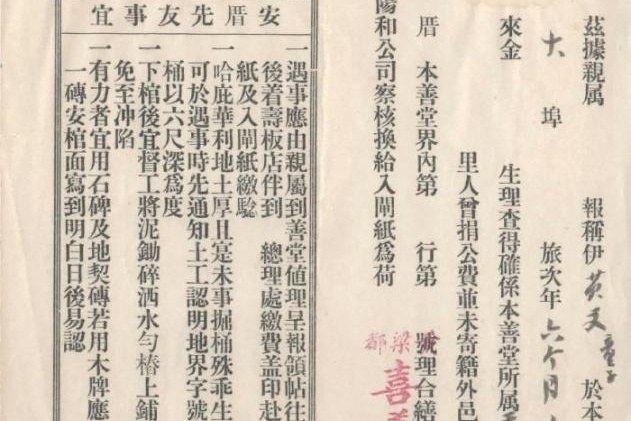 茲據親属 報稱伊 黄文童子 於本
大 埠 旅次年 六个月
來金 生理查得確係本善堂所属
里人曾捐公費並未寄籍外邑
厝 本善堂界內第 行第 號理合繕
陽和公司察核換給入閘紙爲荷
梁
都
喜
安厝先友事宜
一遇事應由親屬到善堂値理呈報領帖往
後着壽板店伴到 總理處繳費盖印赴
紙及入閘紙繳騐
一哈庇華利地土厚且寔未事掘桶殊乖生
可於遇事時先通知土工認明地界字號
桶以六尺深爲度
一下棺後宜督工將泥鋤碎洒水勻樁上鋪
免至冲陷
一有力者宜用石碑及地契磚若用木牌應
一磚安棺面寫到明白日後易認